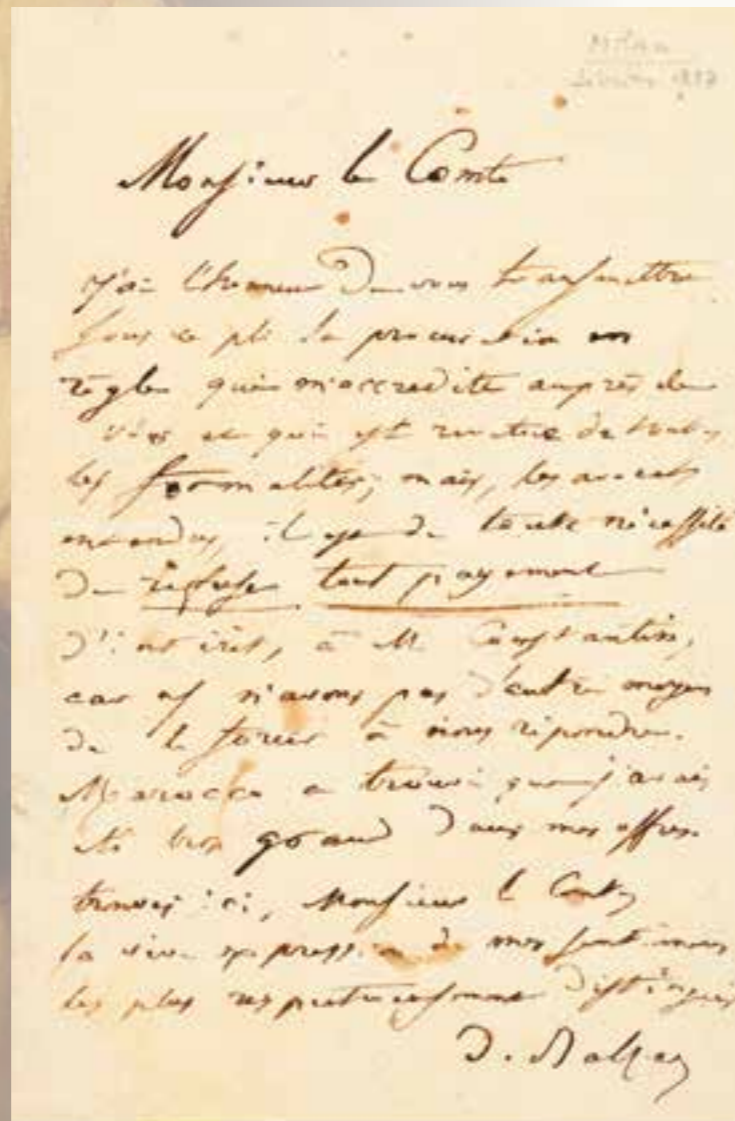 Milan
1837
Monsieur le Comte
J'ai l'honneur de vous transmettre
sous ce pli la procuration en
règle qui m'accrédite auprès de
vous et qui est revêtue de toutes
les formalités; mais, les avocats
entendus, il est de toute nécessité
de refuser tout payement
d'intérêts, à M. Constantin,
car ns n'avons pas d'autre moyen
de le forcer à nous répondre.
Marocco a trouvé que j'avais
été très grand dans mes offres.
trouvez ici, Monsieur le Comte,
la vive expression de mes sentimens
les plus respectueusement distingués
D. Balzac